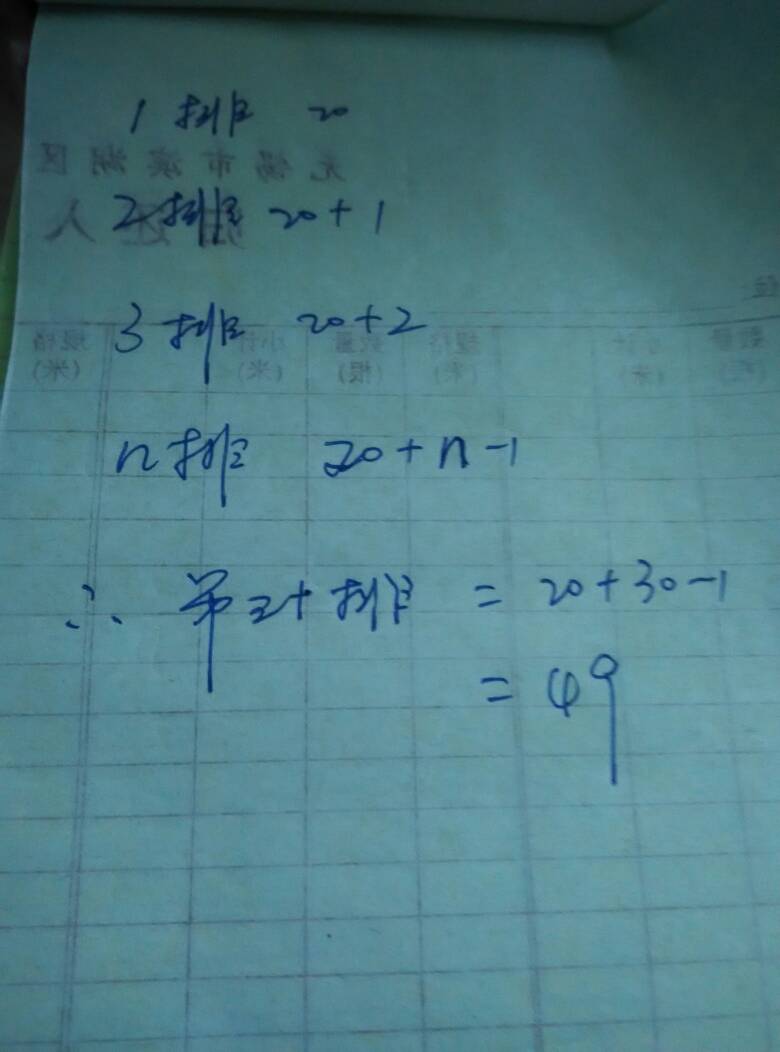 1排 20
无锡市滨湖区
2排 20+1
人
3排 20+2
数量
小计
规格
数量
小计
规格
(米)
(根)
(米)
(米)
n排 20+n-1
∴ 第三十排 = 20+30-1
= 49